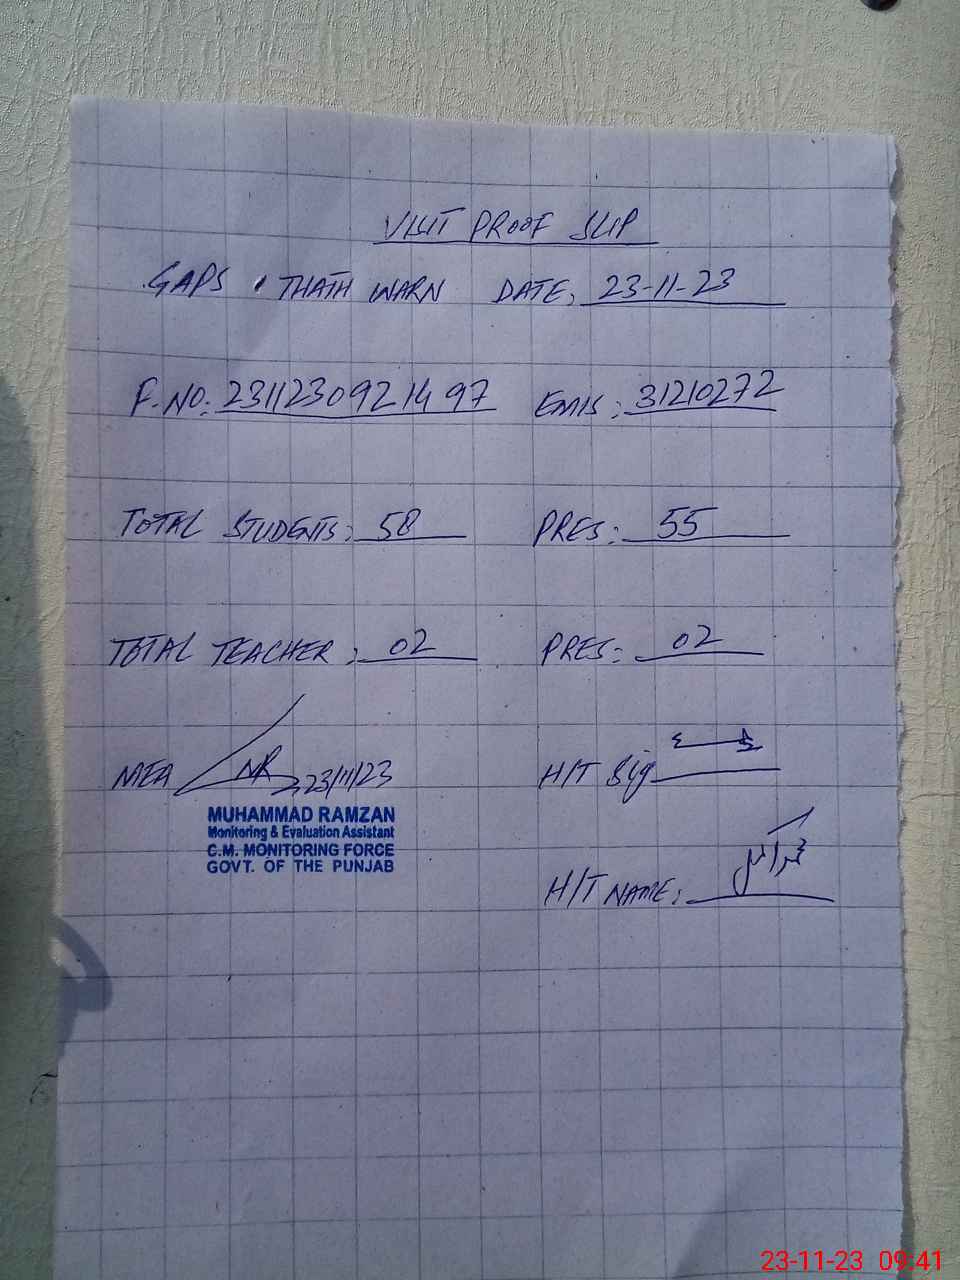 VISIT PROOF SLIP
GAPS THATH WARN DATE: 23-11-23
F.NO: 2311230921497 EMIS: 31210272
TOTAL STUDENTS: 58 PRES: 55
TOTAL TEACHER: 02 PRES: 02
MEA MR 23/11/23 H/T Sig
MUHAMMAD RAMZAN
Monitoring & Evaluation Assistant
C.M. MONITORING FORCE
GOVT. OF THE PUNJAB
H/T NAME:
23-11-23 09:41